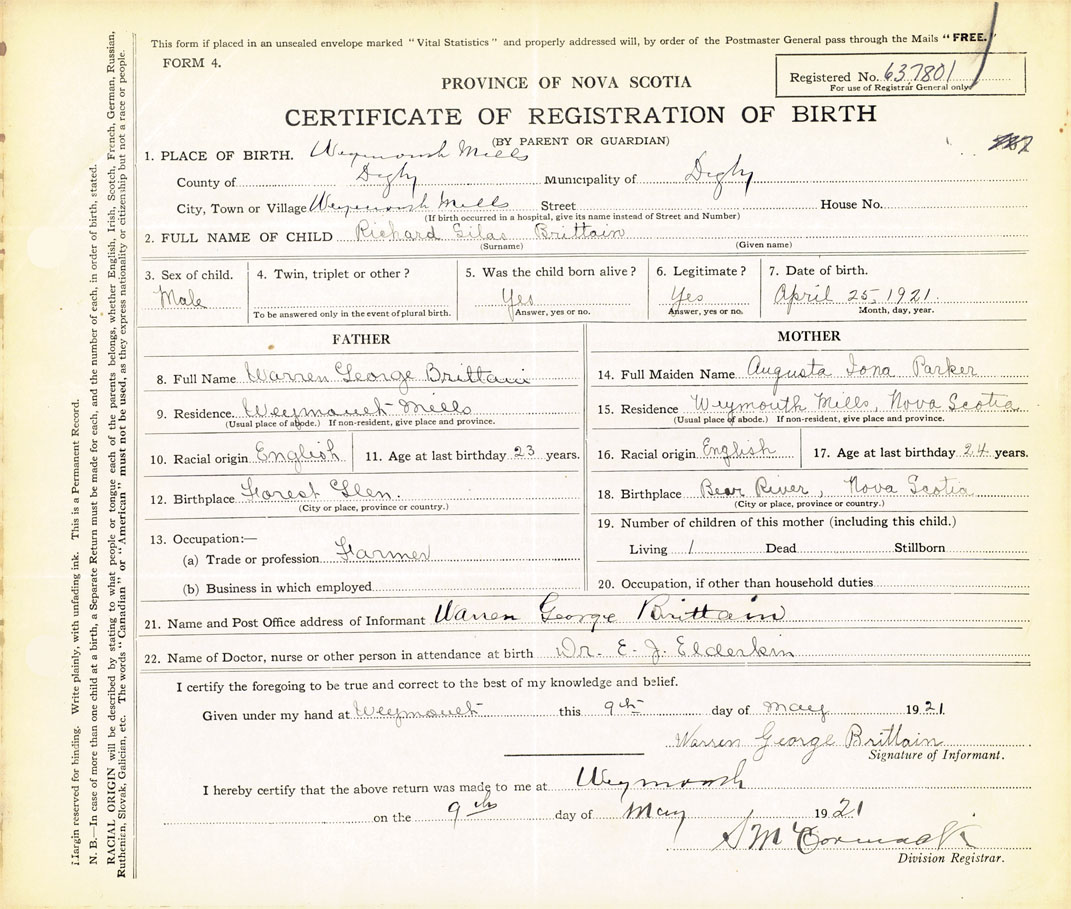 This form if placed in an unsealed envelope marked "Vital Statistics" and properly addressed will, by order of the Postmaster General pass through the Mails "FREE."
FORM 4.
Registered No. 637801
For use of Registrar General only
PROVINCE OF NOVA SCOTIA
CERTIFICATE OF REGISTRATION OF BIRTH
(BY PARENT OR GUARDIAN)
1. PLACE OF BIRTH. Weymouth Mills
County of Digby Municipality of Digby
City, Town or Village Weymouth Mills Street House No.
(If birth occurred in a hospital, give its name instead of Street and Number)
2. FULL NAME OF CHILD Richard Silas Brittain
(Surname) (Given name)
3. Sex of child. 4. Twin, triplet or other? 5. Was the child born alive? 6. Legitimate? 7. Date of birth.
Male Yes Yes April 25, 1921.
To be answered only in the event of plural birth. Answer, yes or no. Answer, yes or no. Month, day, year.
FATHER
8. Full Name Warren George Brittain
9. Residence. Weymouth Mills
(Usual place of abode.) If non-resident, give place and province.
10. Racial origin English 11. Age at last birthday 23 years.
12. Birthplace Forest Glen.
(City or place, province or country.)
13. Occupation:—
(a) Trade or profession Farmer
(b) Business in which employed
MOTHER
14. Full Maiden Name Augusta Iona Parker
15. Residence Weymouth Mills, Nova Scotia
(Usual place of abode.) If non-resident, give place and province.
16. Racial origin English 17. Age at last birthday 24 years.
18. Birthplace Bear River, Nova Scotia
(City or place, province or country.)
19. Number of children of this mother (including this child.)
Living 1 Dead Stillborn
20. Occupation, if other than household duties
21. Name and Post Office address of Informant Warren George Brittain
22. Name of Doctor, nurse or other person in attendance at birth Dr. E. J. Elderkin
I certify the foregoing to be true and correct to the best of my knowledge and belief.
Given under my hand at Weymouth this 9th day of May 1921.
Warren George Brittain
Signature of Informant.
I hereby certify that the above return was made to me at Weymouth
on the 9th day of May 1921
S McCormack
Division Registrar.
Margin reserved for binding. Write plainly, with unfading ink. This is a Permanent Record.
N. B.—In case of more than one child at a birth, a Separate Return must be made for each, and the number of each, in order of birth, stated.
RACIAL ORIGIN will be described by stating to what people or tongue each of the parents belongs, whether English, Irish, Scotch, French, German, Russian,
Ruthenian, Slovak, Galician, etc. The words "Canadian" or "American" must not be used, as they express nationality or citizenship but not a race or people.